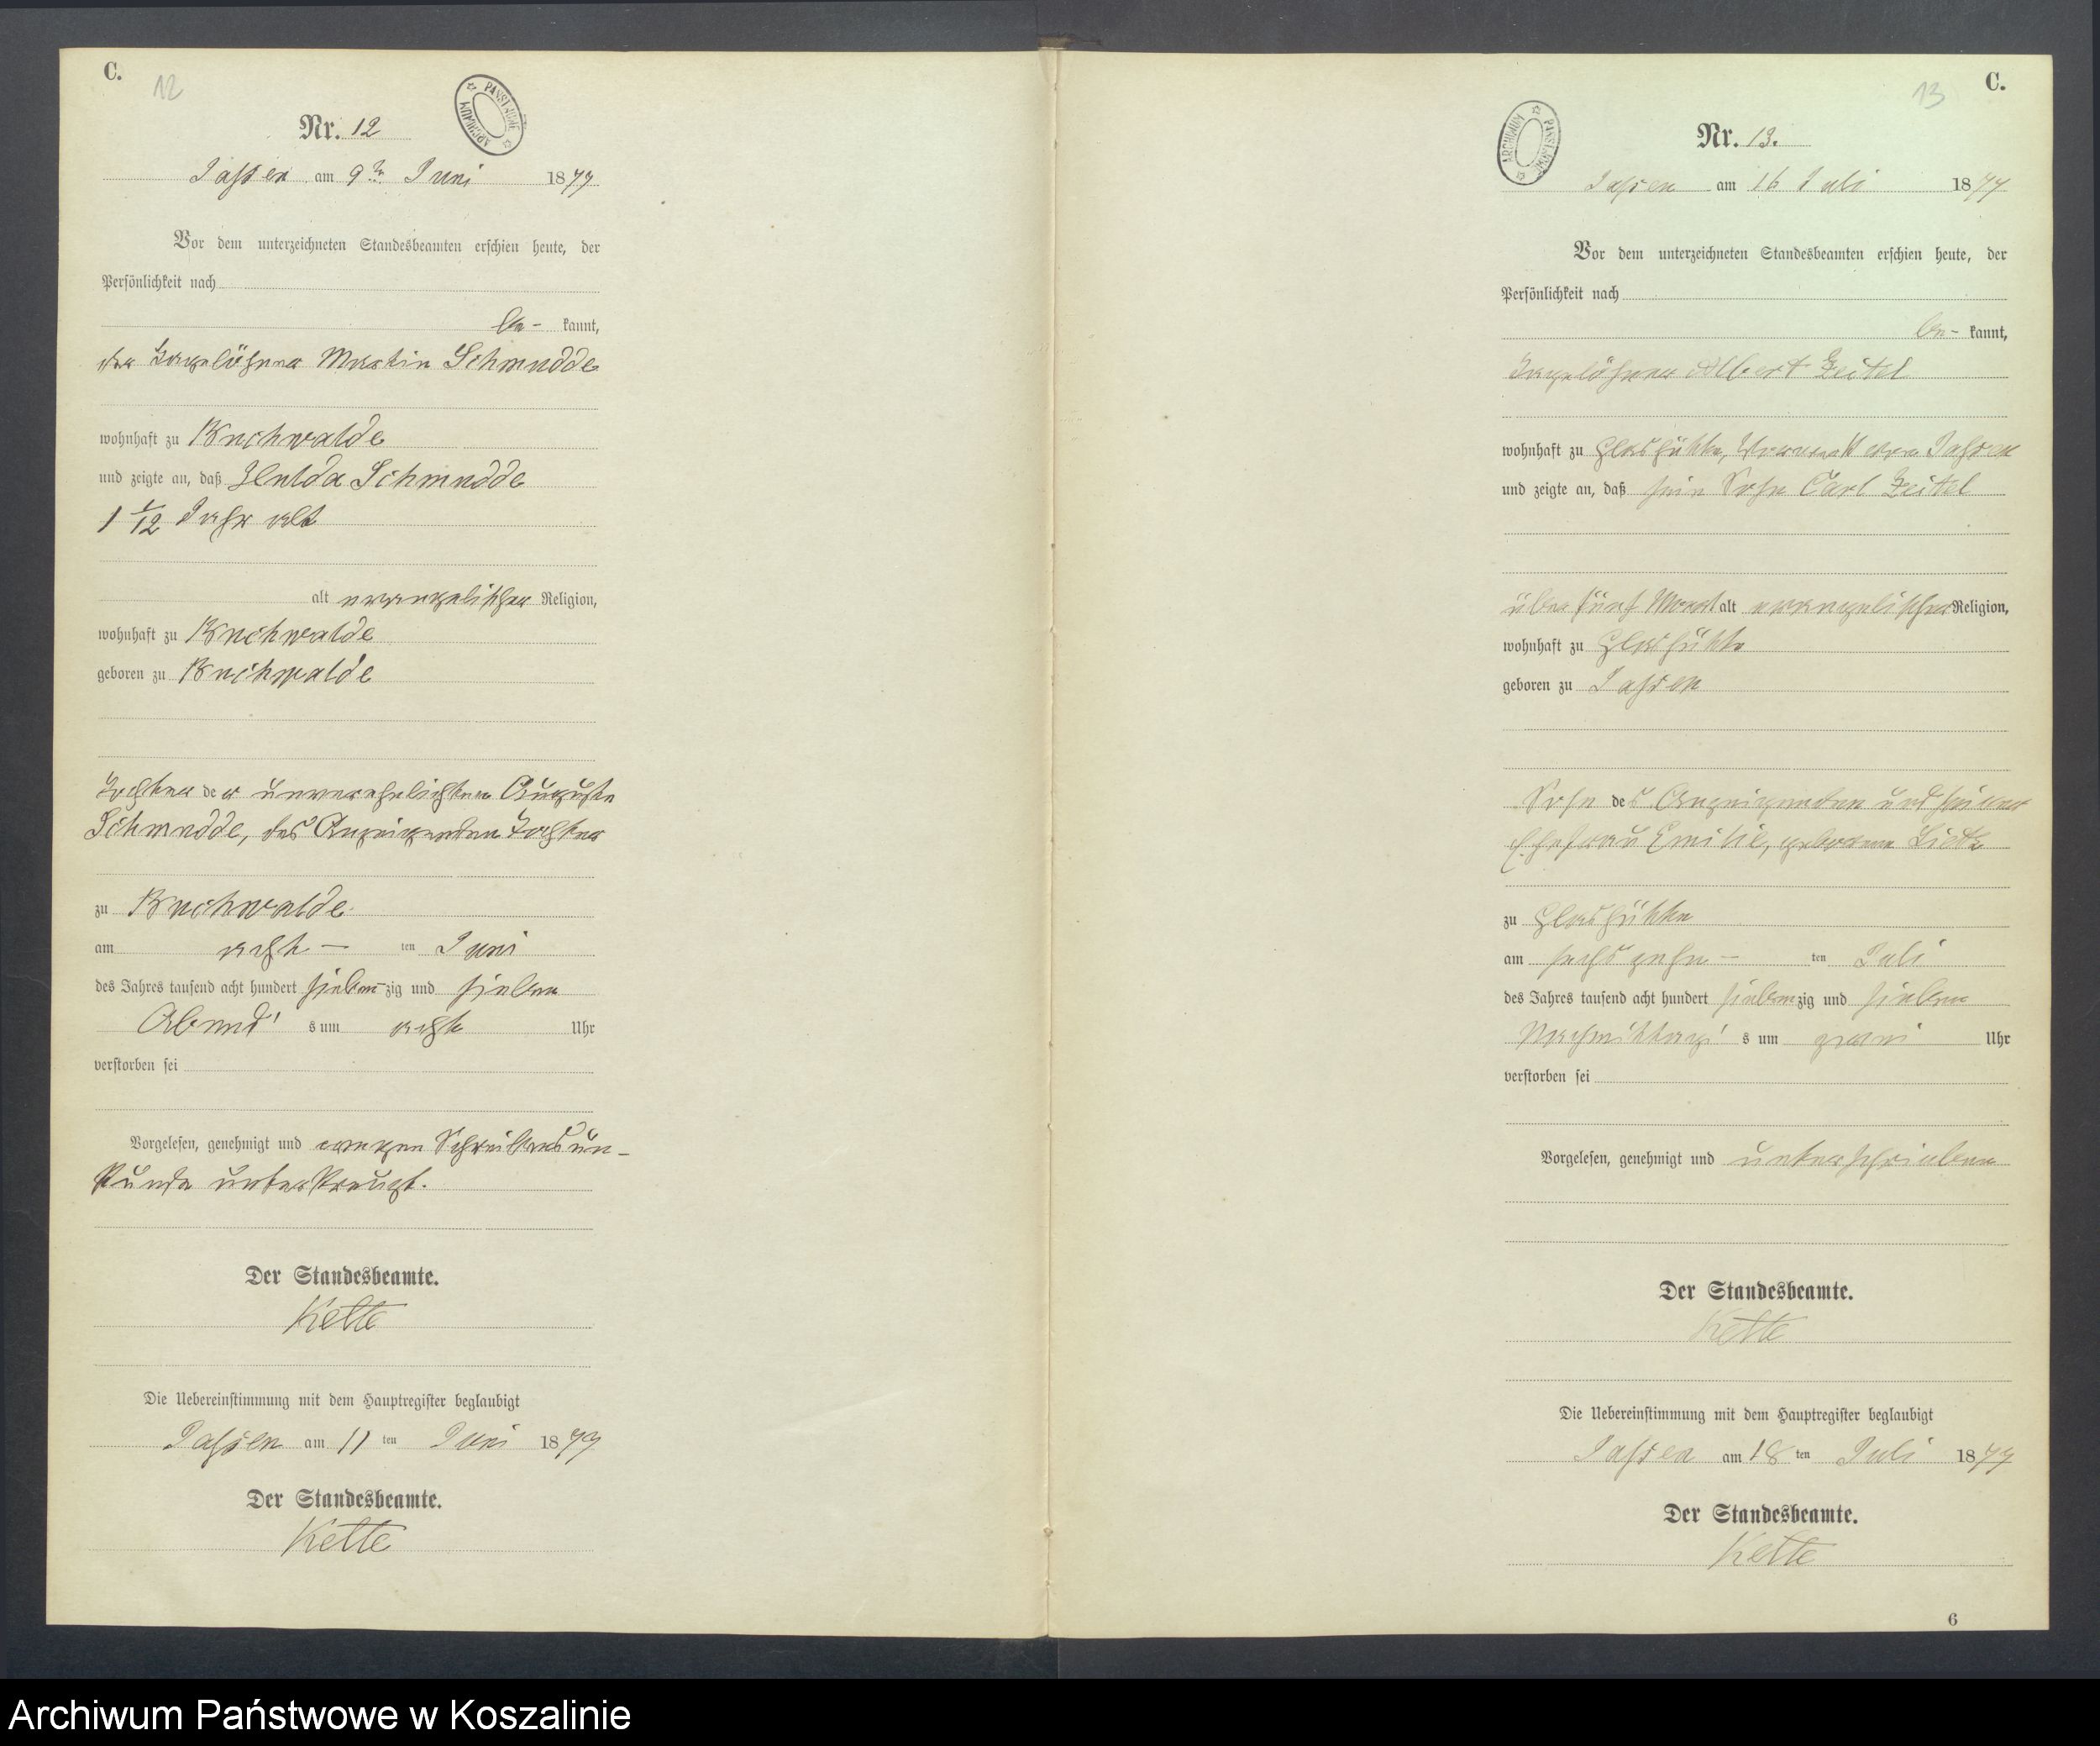 C.
12
Nr. 12
ARCHIWUM PAŃSTWOWE
Jassen am 9ten Juni 1877
Vor dem unterzeichneten Standesbeamten erschien heute, der
Persönlichkeit nach
be- kannt,
der Tagelöhner Martin Schmudde
wohnhaft zu Buchwalde
und zeigte an, daß Hulda Schmudde
1 1/12 Jahr alt
alt evangelischer Religion,
wohnhaft zu Buchwalde
geboren zu Buchwalde
Tochter der unverehelichten Auguste
Schmudde, des Anzeigenden Tochter
zu Buchwalde
am acht- ten Juni
des Jahres tausend acht hundert siebenzig und sieben
Abend's um acht Uhr
verstorben sei
Vorgelesen, genehmigt und wegen Schreibens un-
kunde unterkreuzt.
Der Standesbeamte.
Kette
Die Uebereinstimmung mit dem Hauptregister beglaubigt
Jassen am 11 ten Juni 1877
Der Standesbeamte.
Kette
C.
13
Nr. 13.
ARCHIWUM PAŃSTWOWE
Jassen am 16 Juli 1877
Vor dem unterzeichneten Standesbeamten erschien heute, der
Persönlichkeit nach
be- kannt,
Tagelöhner Albert Zeitel
wohnhaft zu Glashütte, Jassen
und zeigte an, daß sein Sohn Carl Zeitel
über fünf Monat alt evangelischer Religion,
wohnhaft zu Glashütte
geboren zu Jassen
Sohn des Anzeigenden und seiner
Ehefrau Emilie, geborene Lietz
zu Glashütte
am sechszehn- ten Juli
des Jahres tausend acht hundert siebenzig und sieben
Nachmittag's um zwei Uhr
verstorben sei
Vorgelesen, genehmigt und unterschrieben
Der Standesbeamte.
Kette
Die Uebereinstimmung mit dem Hauptregister beglaubigt
Jassen am 18 ten Juli 1877
Der Standesbeamte.
Kette
6
Archiwum Państwowe w Koszalinie